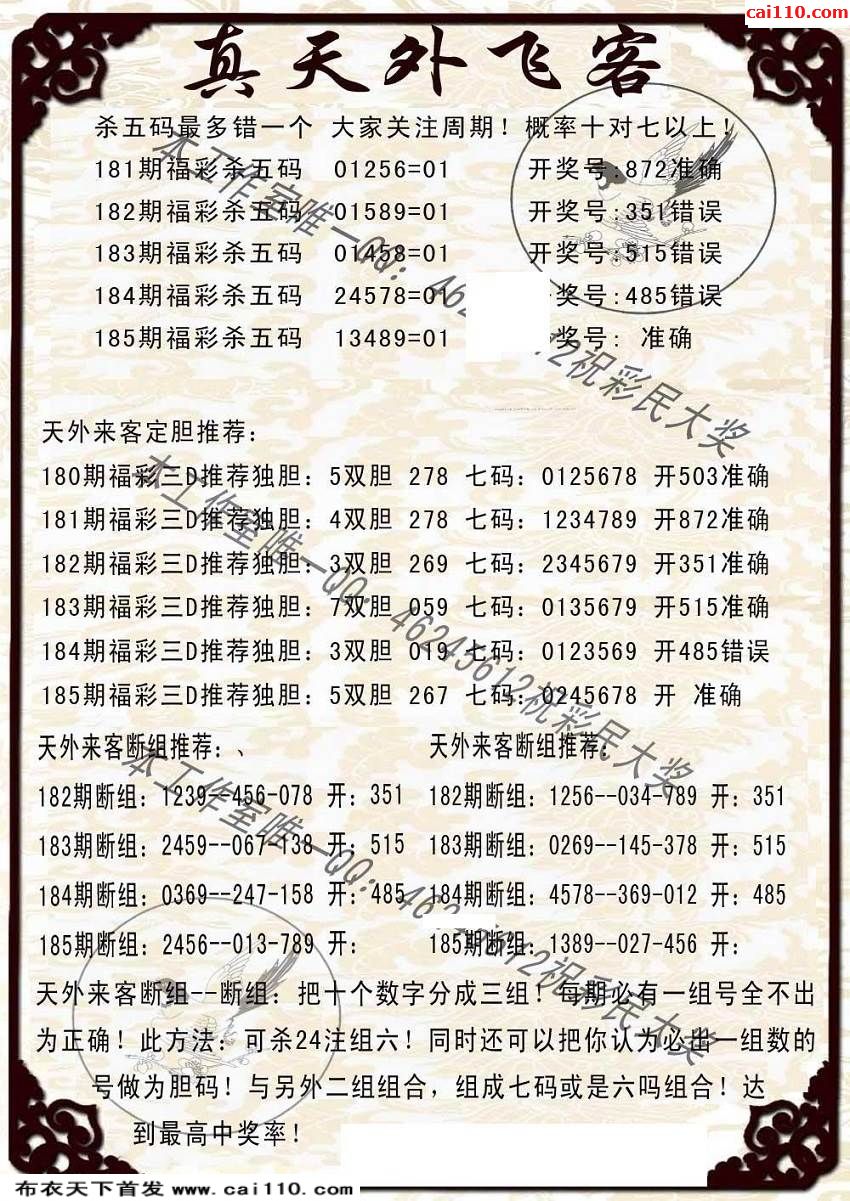 cai110.com
真天外飞客
杀五码最多错一个 大家关注周期！概率十对七以上！
181期福彩杀五码 01256=01 开奖号:872准确
182期福彩杀五码 01589=01 开奖号:351错误
183期福彩杀五码 01458=01 开奖号:515错误
184期福彩杀五码 24578=01 奖号:485错误
185期福彩杀五码 13489=01 奖号: 准确
天外来客定胆推荐：
180期福彩三D推荐独胆：5双胆 278 七码：0125678 开503准确
181期福彩三D推荐独胆：4双胆 278 七码：1234789 开872准确
182期福彩三D推荐独胆：3双胆 269 七码：2345679 开351准确
183期福彩三D推荐独胆：7双胆 059 七码：0135679 开515准确
184期福彩三D推荐独胆：3双胆 019 七码：0123569 开485错误
185期福彩三D推荐独胆：5双胆 267 七码：0245678 开 准确
天外来客断组推荐：、 天外来客断组推荐：
182期断组：1239--456-078 开：351 182期断组：1256--034-789 开：351
183期断组：2459--067-138 开：515 183期断组：0269--145-378 开：515
184期断组：0369--247-158 开：485 184期断组：4578--369-012 开：485
185期断组：2456--013-789 开： 185期断组：1389--027-456 开：
天外来客断组--断组：把十个数字分成三组！每期必有一组号全不出
为正确！此方法：可杀24注组六！同时还可以把你认为必出一组数的
号做为胆码！与另外二组组合，组成七码或是六吗组合！达
到最高中奖率！
本工作室唯一QQ：46245612祝彩民大奖
本工作室唯一QQ：46245612祝彩民大奖
本工作室唯一QQ：46245612祝彩民大奖
布衣天下首发 www.cai110.com